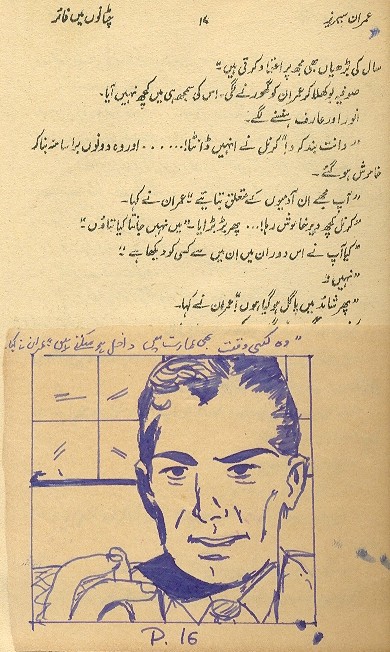 عمران سیریز
چٹانوں میں فائر
سال کی بڑھیاں بھی مجھ پر اعتماد کرتی ہیں"
صوفیہ بوکھلا کر عمران کو گھورنے لگی۔ اس کی سمجھ ہی میں کچھ نہیں آیا۔
انور اور عارف ہنسنے لگے۔
"دانت بند کرو" کرنل نے انہیں ڈانٹا!...... اور وہ دونوں برا سا منہ بنا کر
خاموش ہو گئے۔
"آپ مجھے ان آدمیوں کے متعلق بتایئے" عمران نے کہا۔
"کرنل کچھ دیر خاموش رہا!... پھر بڑبڑایا۔ "میں نہیں جانتا کیا بتاؤں"
"کیا آپ نے اس دوران میں ان میں سے کسی کو دیکھا ہے"
"نہیں"
"پھر شائد میں پاگل ہو گیا ہوں" عمران نے کہا۔
"وہ کسی وقت بھی عمارت میں داخل ہو سکتے ہیں" عمران نے کہا
P. 16